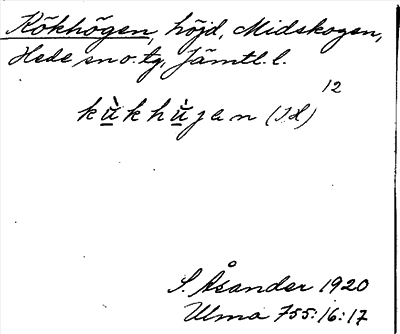 Kökhögen, höjd, Midskogen,
Hede sn o. tg, Jämtl. l.
12
kùkhùjan (Id)
S. Åsander 1920
Ulma 755:16:17